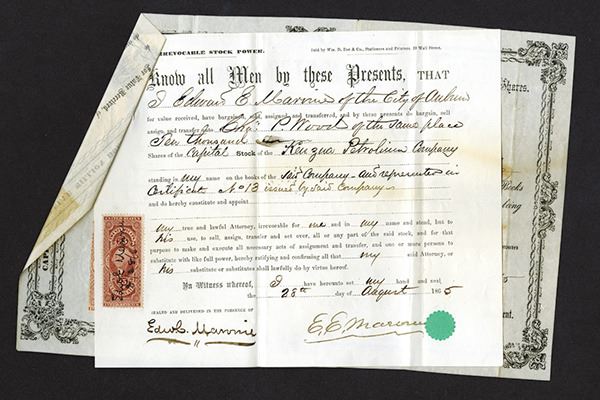 IRREVOCABLE STOCK POWER.
Sold by Wm. D. Roe & Co., Stationers and Printers, 19 Wall Street.
Know all Men by these Presents, THAT
I Edward E. Marvine of the City of Auburn
for value received, have bargained, sold, assigned and transferred, and by these presents do bargain, sell
assign, and transfer unto Chas P. Wood of the same place
Ten thousand
Shares of the Capital Stock of the Kenzua Petroleum Company
standing in my name on the books of the said Company and represented in
Certificate No 13 issued by said Company
and do hereby constitute and appoint
my true and lawful Attorney, irrevocable for me and in my name and stead, but to
his use, to sell, assign, transfer and set over, all or any part of the said stock, and for that
purpose to make and execute all necessary acts of assignment and transfer, and one or more persons to
substitute with like full power, hereby ratifying and confirming all that my said Attorney, or
his substitute or substitutes shall lawfully do by virtue hereof.
In Witness whereof, I have hereunto set my hand and seal
the 28th day of August 1865
SEALED AND DELIVERED IN THE PRESENCE OF
E. E. Marvine
Shares.
Books